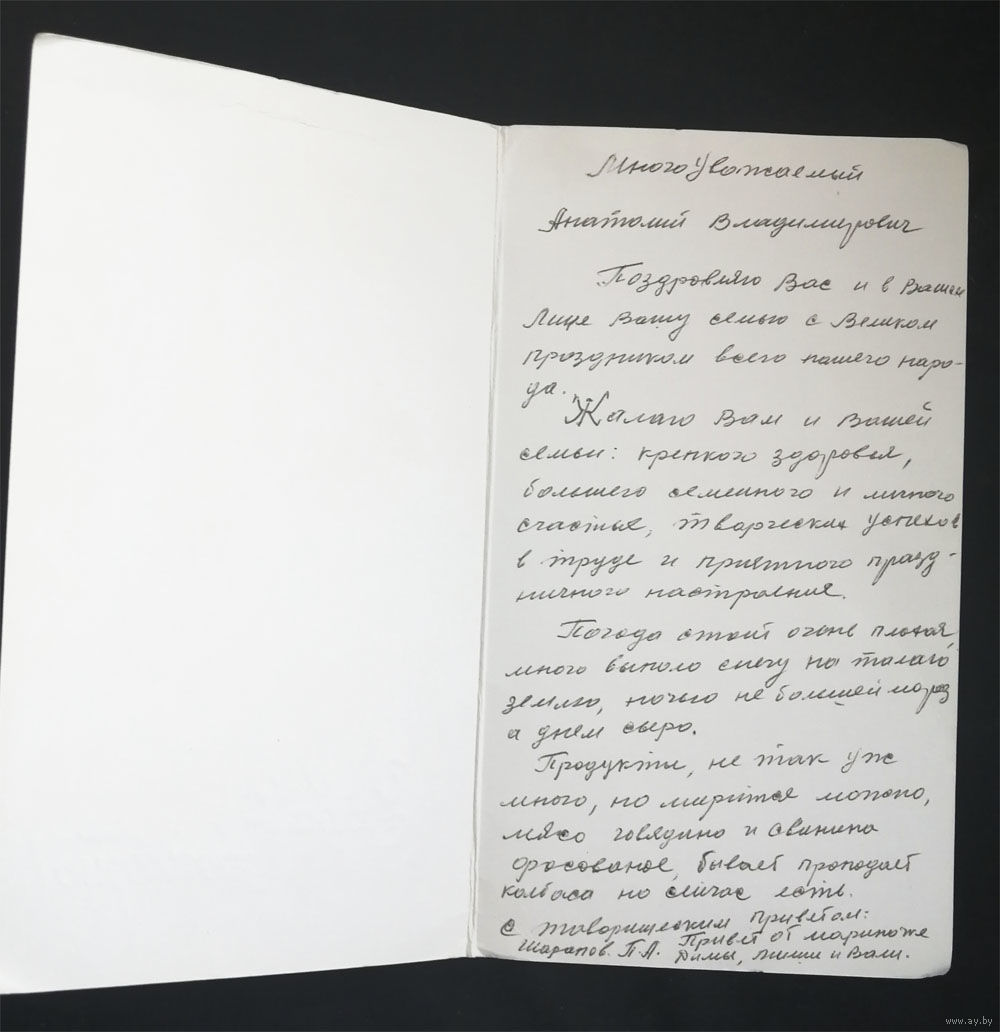 Многоуважаемый
Анатолий Владимирович
Поздровляю Вас и в Вашем
лице Вашу семью с Великом
праздником всего нашего наро-
да.
Жалаю Вам и Вашей
семьи: крепкого здоровья,
большего семейного и личного
счастья, творческих успехов
в труде и приятного празд-
ничного настроения.
Погода стоит очень плохая,
много выпало снегу на талаю
землю, ночью не большей мороз
а днем сыро.
Продукты, не так уж
много, но мирится можно,
мясо говядина и свинина
фасованое, бывает пропадает
колбаса но сейчас есть.
С товарищеским приветом:
Шарапов. П.А. Привет от
Димы, и Вали.
www.ay.by